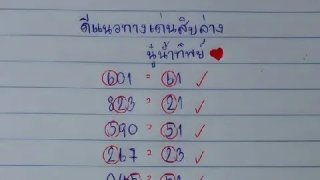 ดีแนวทางเด่นสิบล่าง
นู๋น้ำทิพย์
601 = 61 ✓
823 = 21 ✓
590 = 51 ✓
267 = 23 ✓